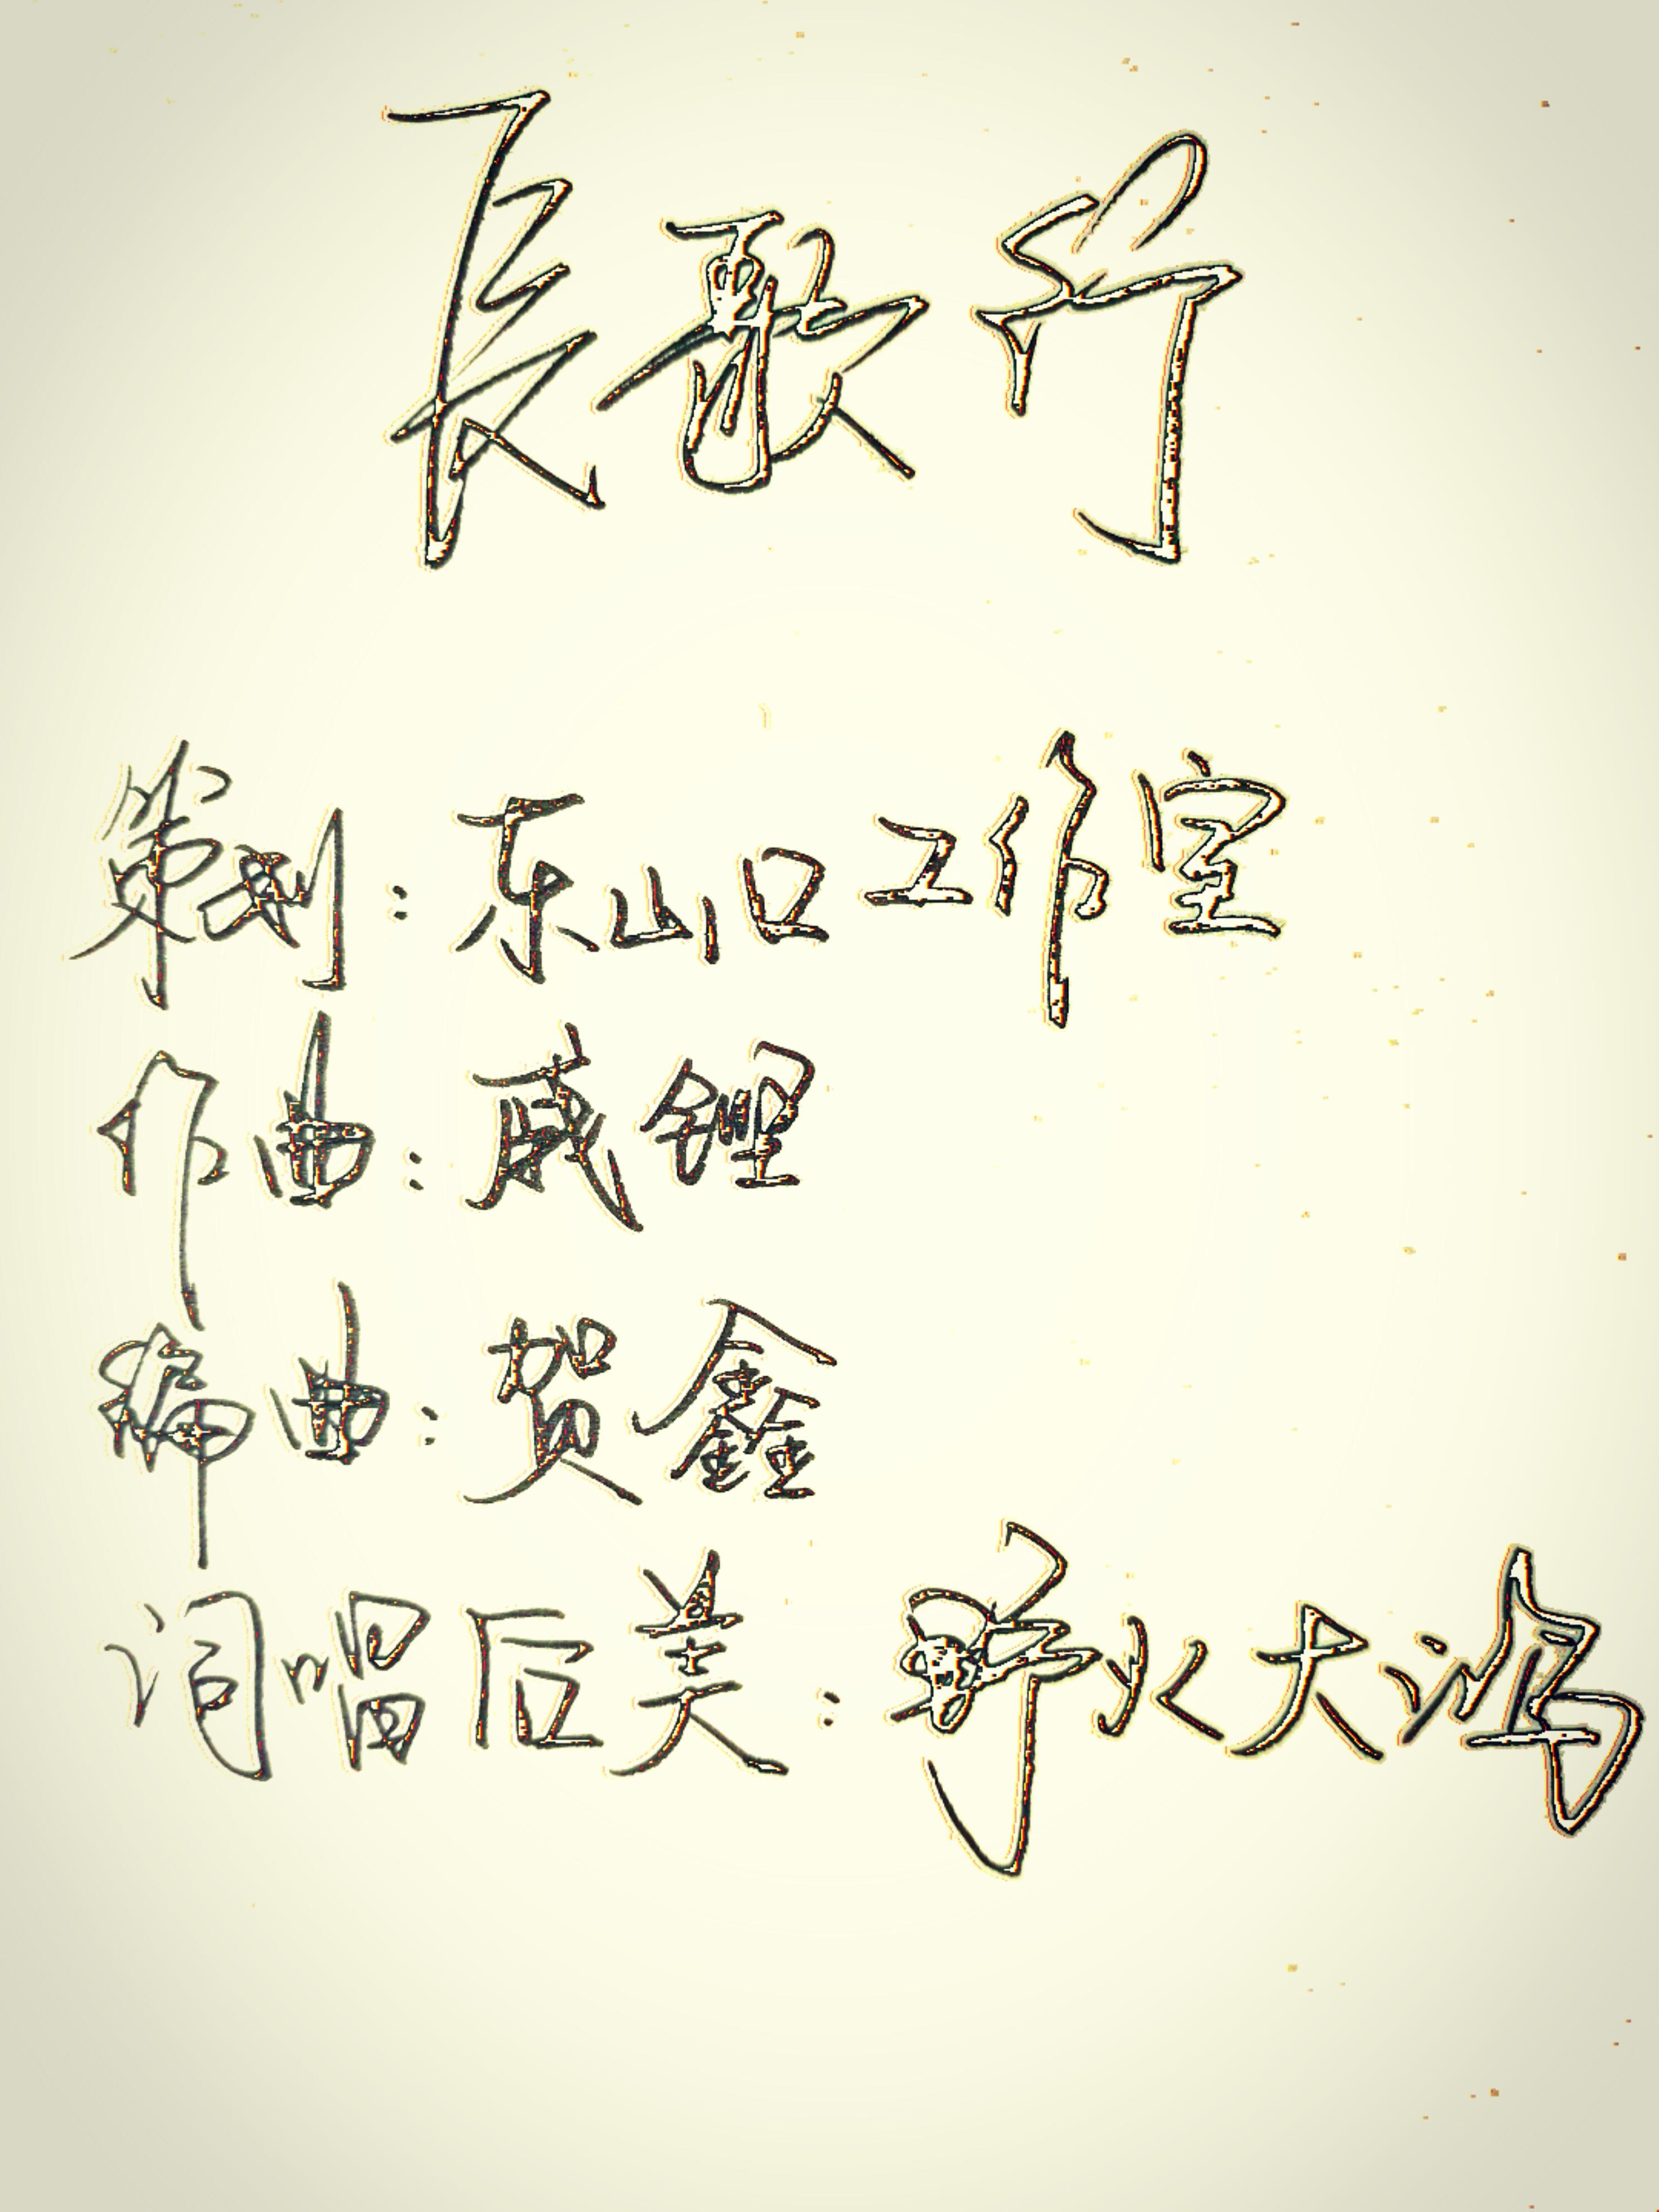 長歌行
策划：东山口工作室
作曲：威锂
编曲：贺鑫
词唱后美：野火大鸿